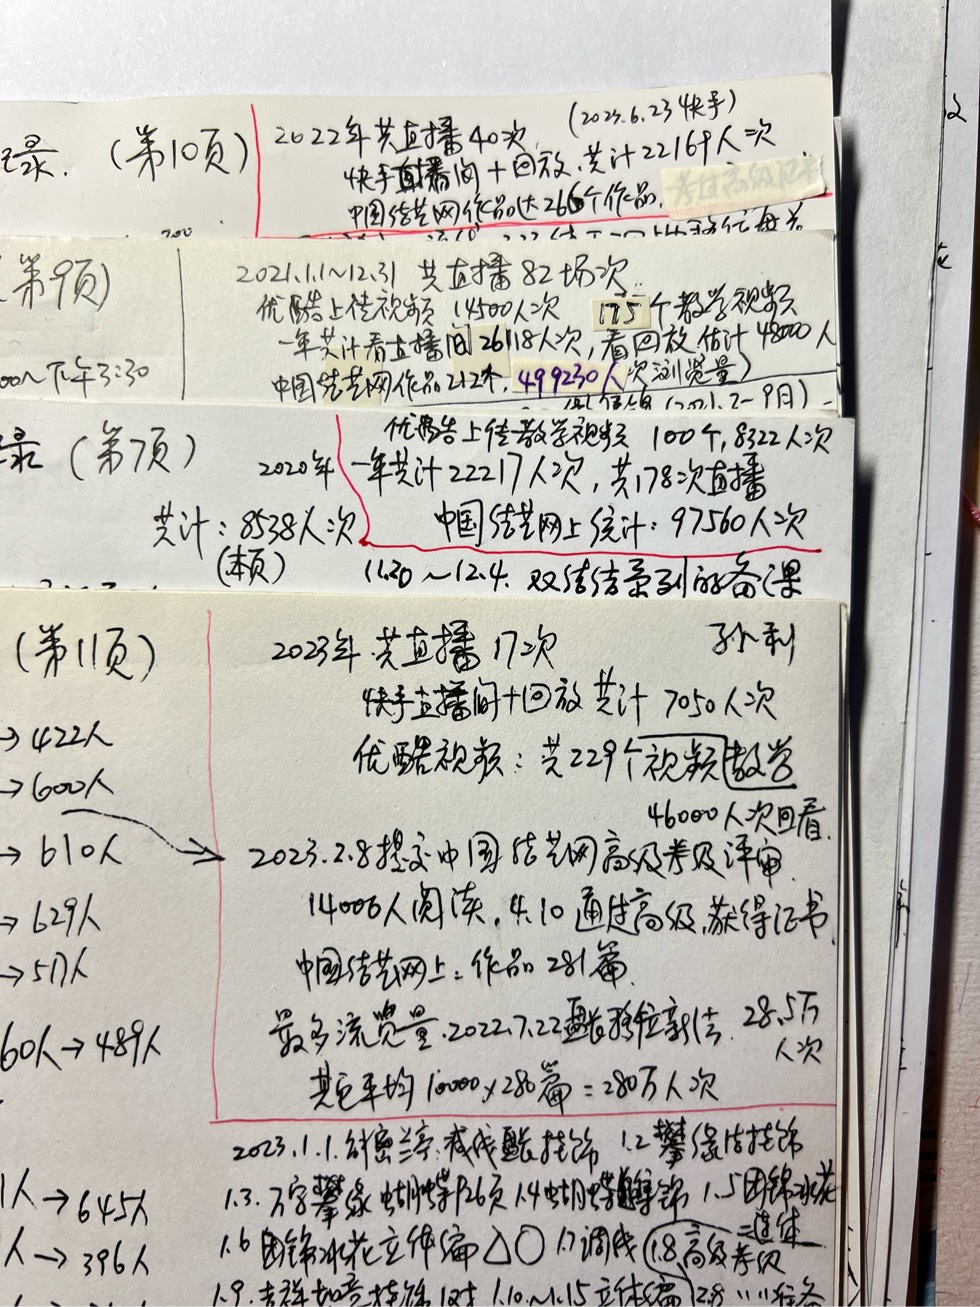 录.（第10页）
2022年共直播40次 （2023.6.23快手）
快手直播间+回放.共计22169人次
中国结艺网作品达266个作品.
第9页）
2021.1.1~12.31 共直播82场次
优酷上传视频 14500人次 175个教学视频
一年共计看直播间26118人次，看回放估计48000人
00~下午3:30
中国结艺网作品212个，499230人次浏览量）
(2021.2-9月)
录（第7页）
优酷上传教学视频 100个,8322人次
2020年 一年共计22217人次，共178次直播
共计：8538人次
（本页）
中国结艺网上统计：97560人次
11.30~12.4.双钱结系列的备课
（第11页）
2023年.共直播17次 孙利
快手直播间+回放共计 7050人次
→422人
优酷视频：共229个视频教学
→600人
46000人次回看.
→610人
2023.2.8提交中国结艺网高级考级评审.
→629人
14006人阅读.4.10通过高级.获得证书.
→511人
中国结艺网上：作品281篇.
最多流览量.2022.7.22 28.5万
人次
60人→489人
其它平均10000×280篇=280万人次
1人→645人
1.3.万字攀缘蝴蝶P26页1.4蝴蝶 1.5团锦冰花
二连体
人→396人
1.6团锦冰花立体编△○ 1.7调线 1.8高级考级
1.9.吉祥如意挂饰 1.10~1.15立体编